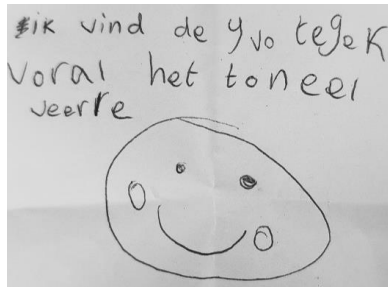 ik vind de yvo tegek
voral het toneel
veerre